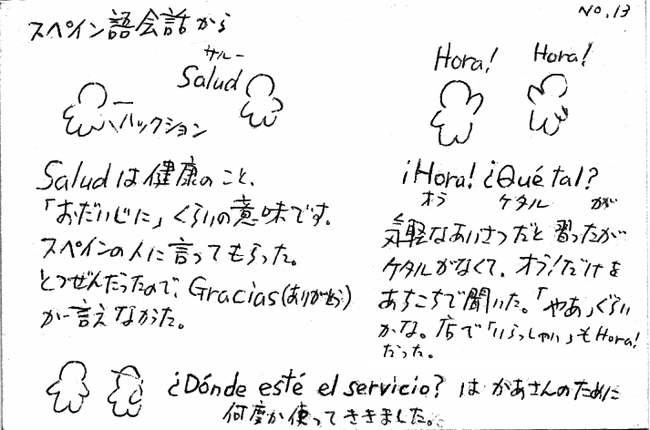 No.13
スペイン語会話から
サルー
Salud
ハックション
Saludは健康のこと、
「おだいじに」くらいの意味です。
スペインの人に言ってもらった。
とつぜんだったので、Gracias(ありがとう)
が言えなかった。
Hora! Hora!
¡Hora! ¿Qué tal?
オラ ケタル が
気軽なあいさつだと習ったが
ケタルがなくて、オラ!だけを
あちこちで聞いた。「やあ」ぐらい
かな。店で「いらっしゃい」もHora!
だった。
¿Dónde esté el servicio? は かあさんのために
何度か使ってききました。